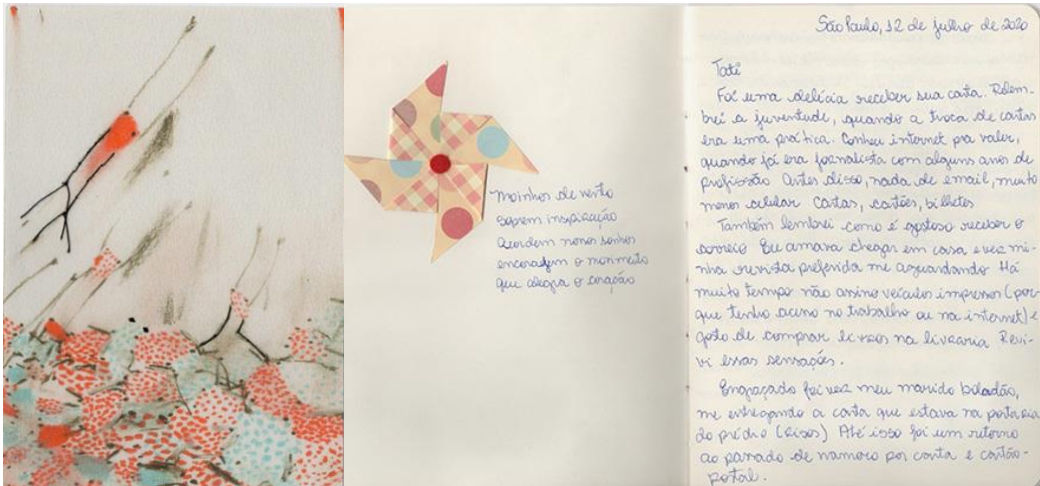 Moinhos de vento
soprem inspiração
Acordem nossos sonhos
encorajem o movimento
que alegra o coração
São Paulo, 12 de julho de 2020
Tati
Foi uma delícia receber sua carta. Relem-
brei a juventude, quando a troca de cartas
era uma prática. Conheci internet pra valer,
quando já era jornalista com alguns anos de
profissão Antes disso, nada de email, muito
menos celular Cartas, cartões, bilhetes
Também lembrei como é gostoso receber o
correio Eu amava chegar em casa e ver mi-
nha revista preferida me aguardando Há
muito tempo não assino veículos impressos (por-
que tenho acesso no trabalho ou na internet) e
gosto de comprar livros na livraria Revi-
vi essas sensações.
Engraçado foi ver meu marido boladão,
me entregando a carta que estava na portaria
do prédio (Risos) Até isso foi um retorno
ao passado de namoro por carta e cartão-
postal.